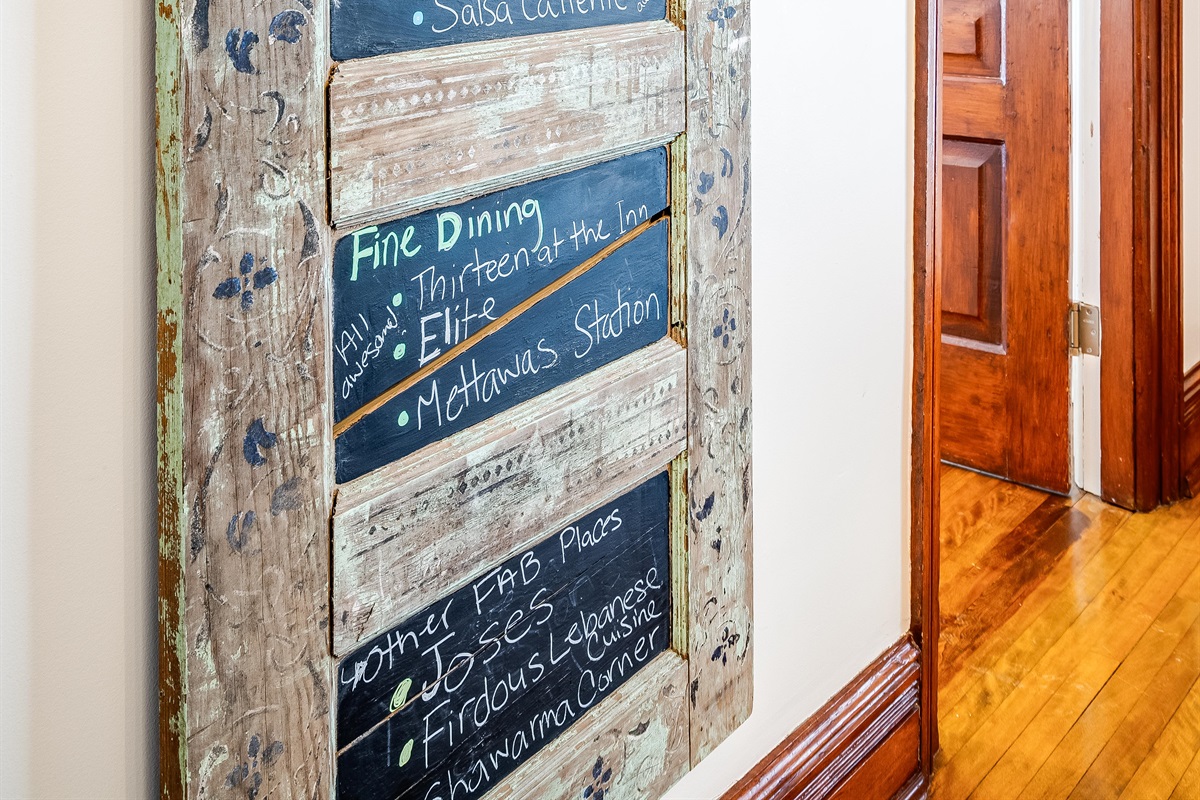 • Salsa Caliente
Fine Dining
• Thirteen at the Inn
• Elite
!All
awesome!
• Mettawas Station
other FAB Places
• Joses
• Firdous Lebanese
Cuisine
Shawarma Corner